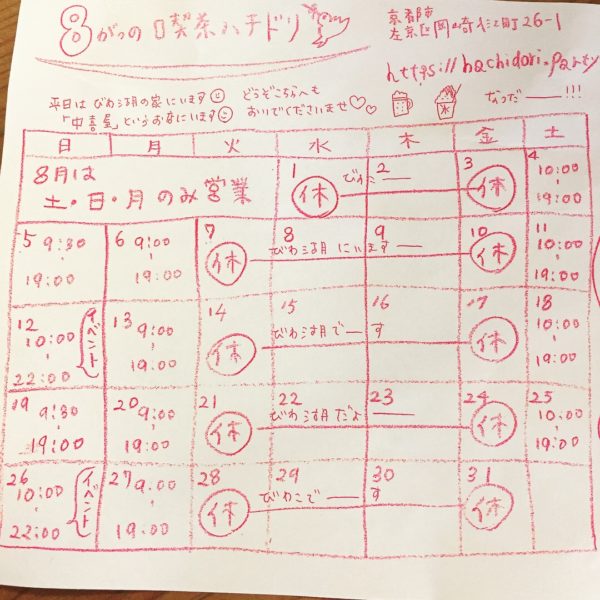 8がつの喫茶ハチドリ
京都市
左京区岡崎
町26-1
https://hachidori.party
平日は びわ湖の家にいます
「中喜屋」というお店にいます
どうぞこちらへも
おいでくださいませ♡♡
氷
なつだ——!!!
日 月 火 水 木 金 土
8月は
土・日・月 のみ営業
1 休 びわこ 2 —— 3 休 4 10:00 - 19:00
5 9:30 - 19:00
6 9:00 - 19:00
7 休 8 びわ湖にい 9 ます— 10 休
11 10:00 - 19:00
12 10:00 - 22:00 イベント
13 9:00 - 19:00
14 休 15 びわ湖で— 16 す 17 休
18 10:00 - 19:00
19 9:30 - 19:00
20 9:00 - 19:00
21 休 22 びわ湖だよ 23 —— 24 休
25 10:00 - 19:00
26 10:00 - 22:00 イベント
27 9:00 - 19:00
28 休 29 びわこで— 30 す 31 休